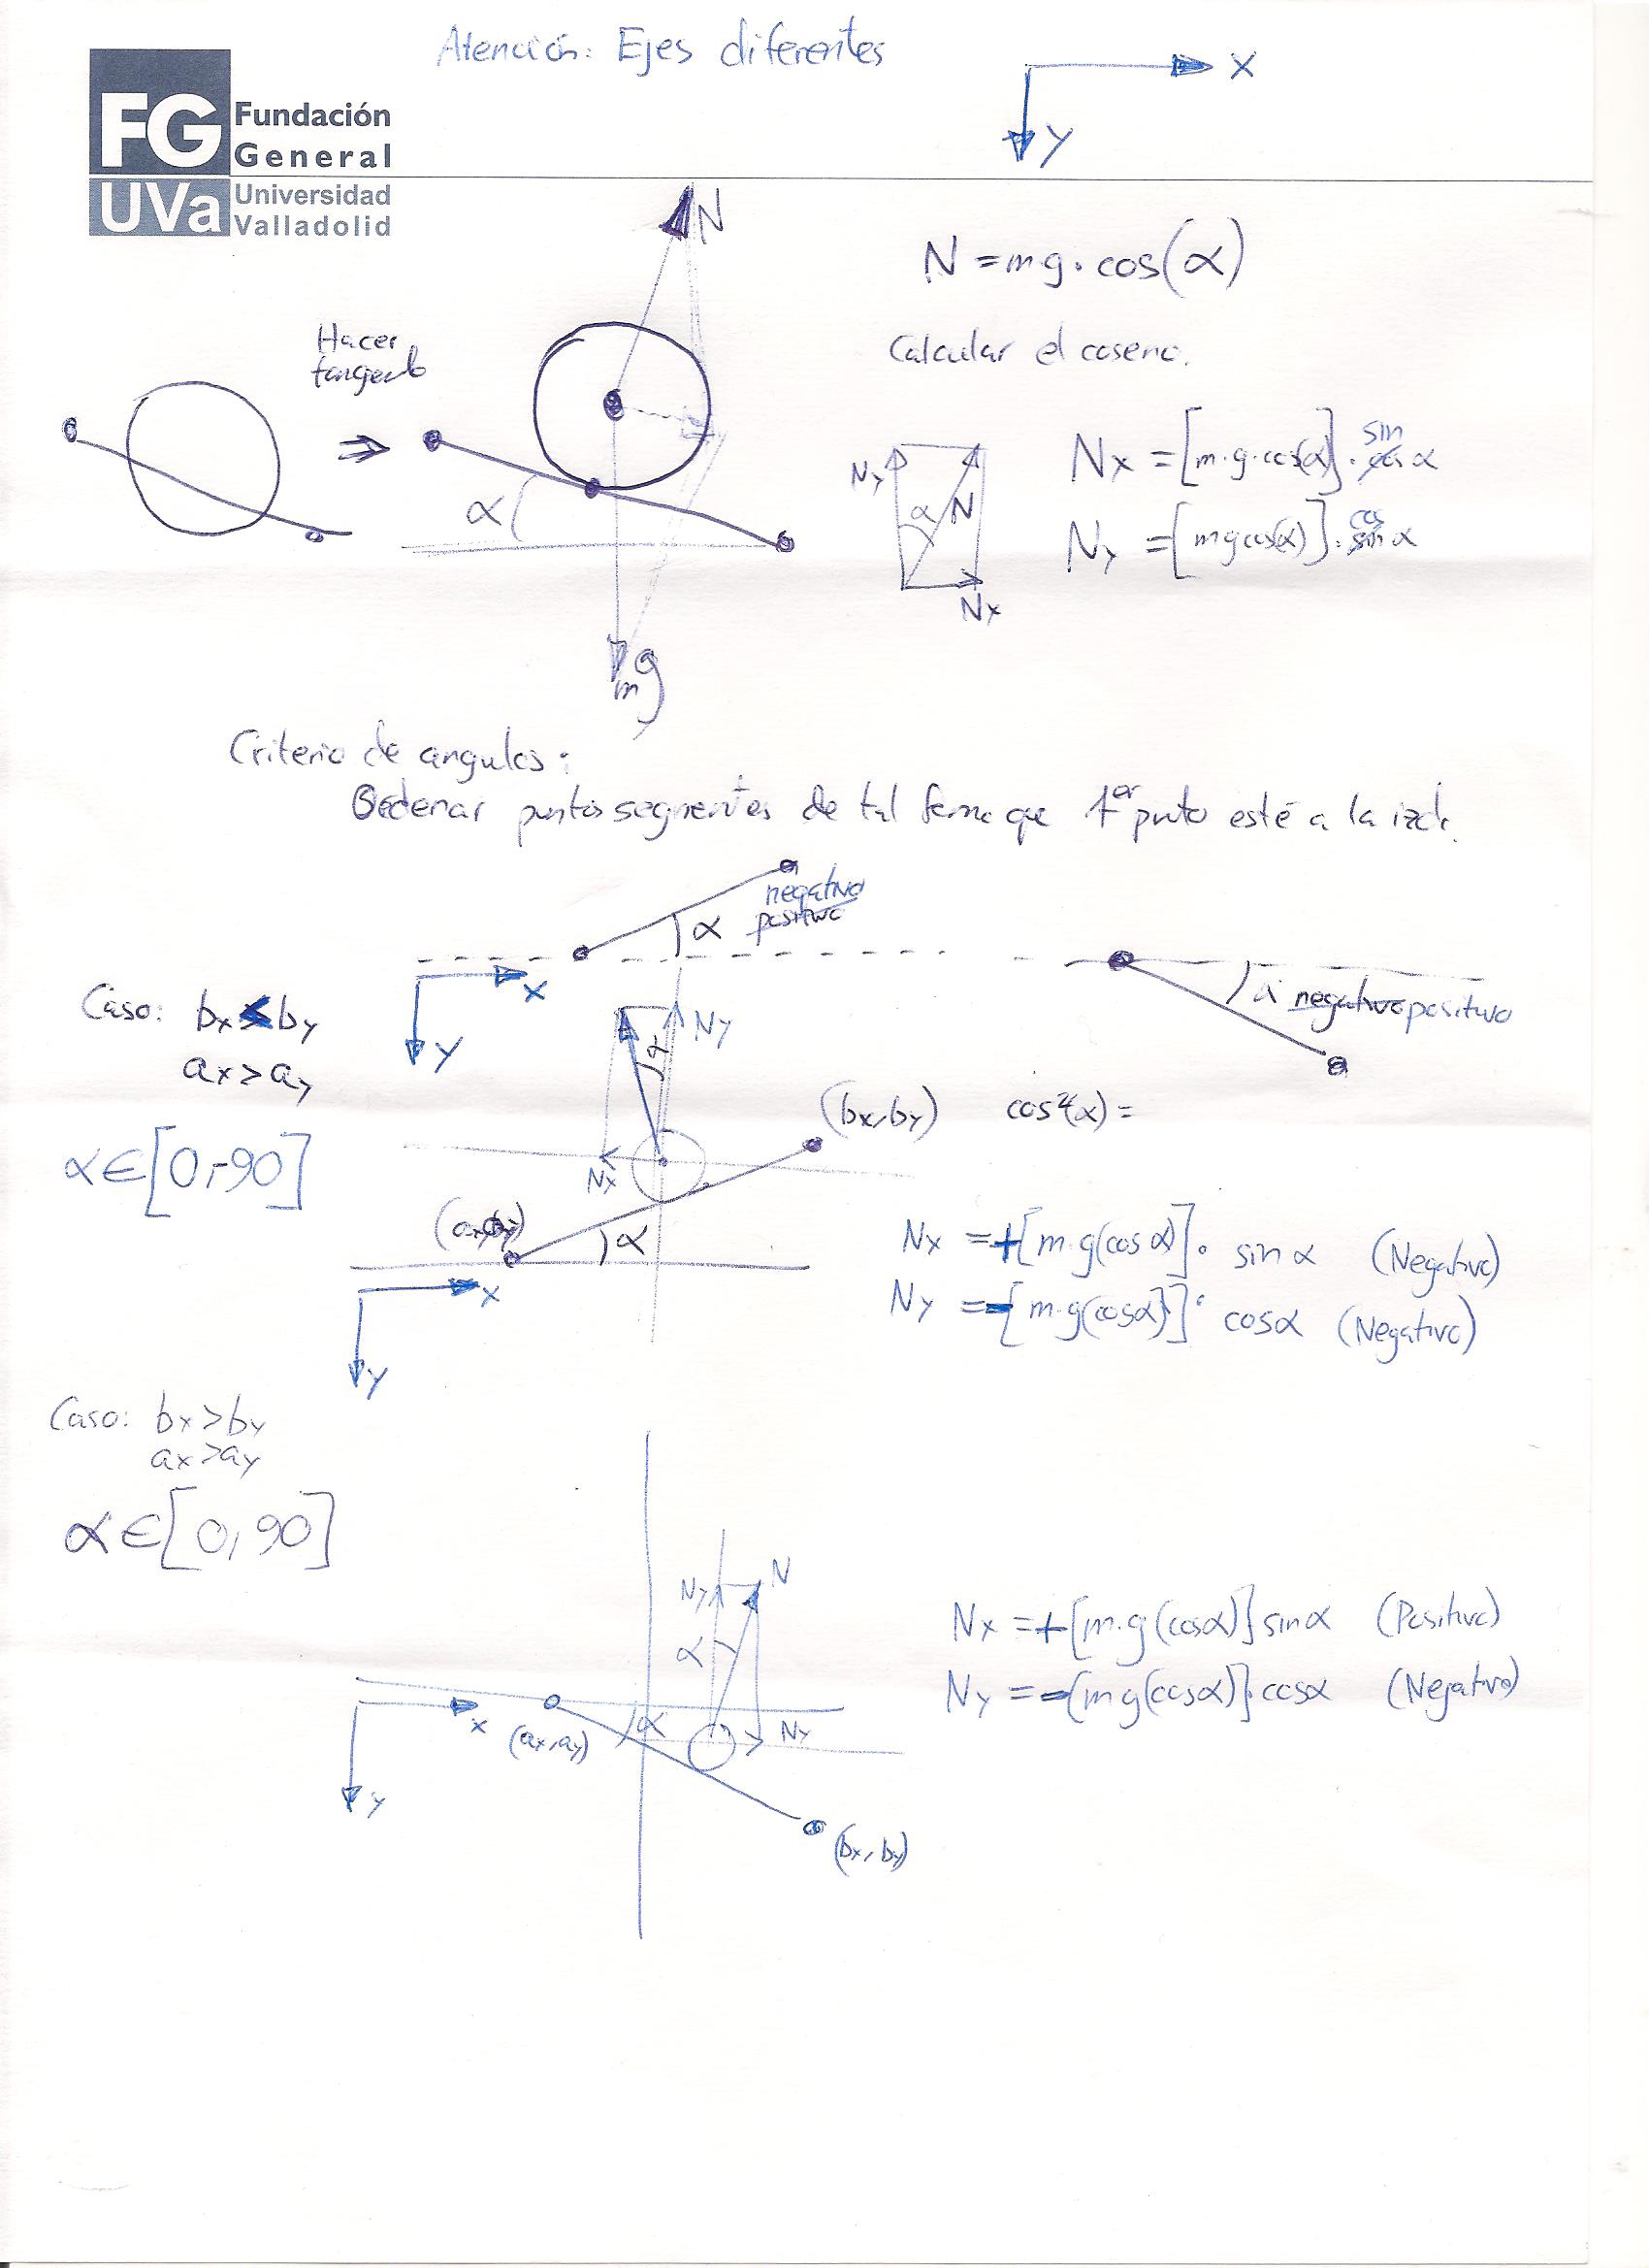 Atención: Ejes diferentes
X
Y
FG Fundación
General
UVa Universidad
Valladolid
N
N = mg. cos(α)
Hacer
tangente
Calcular el coseno.
α
Ny
α N
Nx
Nx = [m.g.cos(α)]. cos sin α
Ny = [mgcos(α)]. sin cos α
mg
Criterio de angulos:
Ordenar puntos segmentos de tal forma que 1er punto esté a la izda.
negativo
α positivo
X
Y
α negativo positivo
Caso: bx < by
ax > ay
α ∈ [0,-90]
Ny
α
Nx
(bx, by)
cos²(α) =
(ax, ay)
α
X
Y
Nx = +[m.g(cosα)]. sin α (Negativo)
Ny = -[m.g(cosα)]. cosα (Negativo)
Caso: bx > by
ax > ay
α ∈ [0, 90]
Ny
N
α
Nx = +[m.g(cosα)] sinα (Positivo)
Ny = -[mg(cosα)].cosα (Negativo)
x
(ax, ay)
α
Ny
y
(bx, by)